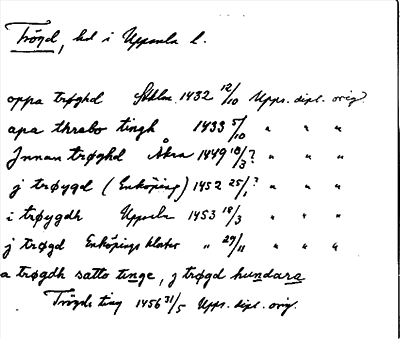 Trögd, hd i Uppsala l.
oppa trøghd Sthlm 1432 12/10 Upps. dipl. orig.
apa thrabo tingh 1433 5/10 " " "
Jnnan trøghd Åkra 1449 18/3? " " "
j trøygd (Enköping) 1452 25/1? " " "
i trøygdh Uppsala 1453 18/3 " " "
j trøgd Enköpings kloster " 29/11 " " "
a trøgdh satto tinge, j trøgd hundara
Trögds ting 1456 31/5 Upps. dipl. orig.